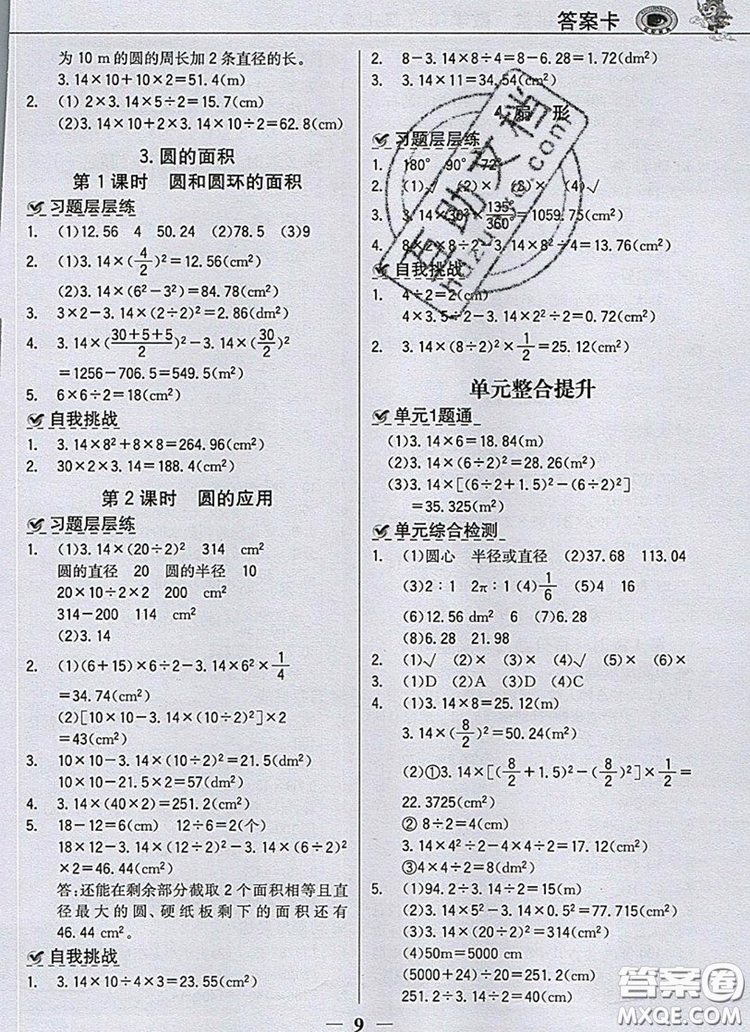 答案卡
为 10 m 的圆的周长加 2 条直径的长。
3.14×10+10×2=51.4(m)
2. (1) 2×3.14×5÷2=15.7(cm)
(2)3.14×10+2×3.14×10÷2=62.8(cm)
3. 圆的面积
第 1 课时 圆和圆环的面积
习题层层练
1. (1)12.56 4 50.24 (2)78.5 (3)9
2. (1)3.14×(4/2)²=12.56(cm²)
(2)3.14×(6²-3²)=84.78(cm²)
3. 3×2-3.14×(2÷2)²=2.86(dm²)
4. 3.14×((30+5+5)/2)²-3.14×(30/2)²
=1256-706.5=549.5(cm²)
5. 6×6÷2=18(cm²)
自我挑战
1. 3.14×8²+8×8=264.96(cm²)
2. 30×2×3.14=188.4(cm²)
第 2 课时 圆的应用
习题层层练
1. (1)3.14×(20÷2)² 314 cm²
圆的直径 20 圆的半径 10
20×10÷2×2 200 cm²
314-200 114 cm²
(2)3.14
2. (1)(6+15)×6÷2-3.14×6²×1/4
=34.74(cm²)
(2)[10×10-3.14×(10÷2)²]×2
=43(cm²)
3. 10×10-3.14×(10÷2)²=21.5(dm²)
10×10-21.5×2=57(dm²)
4. 3.14×(40×2)=251.2(cm²)
5. 18-12=6(cm) 12÷6=2(个)
18×12-3.14×(12÷2)²-3.14×(6÷2)²
×2=46.44(cm²)
答:还能在剩余部分截取 2 个面积相等且直
径最大的圆、硬纸板剩下的面积还有
46.44 cm²。
自我挑战
1. 3.14×10÷4×3=23.55(cm²)
2. 8-3.14×8÷4=8-6.28=1.72(dm²)
3. 3.14×11=34.54(cm²)
4. 扇 形
习题层层练
1. 180° 90° 72°
2. (1)√ (2)× (3)× (4)√
3. 3.14×(30²×135°/360°)=1059.75(cm²)
4. 8×2×8÷2-3.14×8²÷4=13.76(cm²)
自我挑战
1. 4÷2=2(cm)
4×3.5÷2-3.14×2²÷2=0.72(cm²)
2. 3.14×(8÷2)²×1/2=25.12(cm²)
单元整合提升
单元1题通
(1)3.14×6=18.84(m)
(2)3.14×(6÷2)²=28.26(m²)
(3)3.14×[(6÷2+1.5)²-(6÷2)²]
=35.325(m²)
单元综合检测
1. (1)圆心 半径或直径 (2)37.68 113.04
(3)2∶1 2π∶1 (4)1/6 (5)4 16
(6)12.56 dm² (7)6.28
(8)6.28 21.98
2. (1)√ (2)× (3)× (4)√ (5)×
3. (1)D (2)A (3)D (4)C
4. (1)3.14×8=25.12(m)
3.14×(8/2)²=50.24(m²)
(2)①3.14×[(8/2+1.5)²-(8/2)²]×1/2=
22.3725(cm²)
②8÷2=4(cm)
3.14×4²÷2-4×4÷2=17.12(cm²)
③4×4÷2=8(cm²)
5. (1)94.2÷3.14÷2=15(m)
(2)3.14×5²-3.14×2²=65.94(m²)
(3)3.14×(20÷2)²=314(cm²)
(4)50m=5000 cm
(5000+24)÷20=251.2(cm)
251.2÷3.14÷2=40(cm)
9
互助文档
hdzuoye.com
答案圈
MXQE.COM